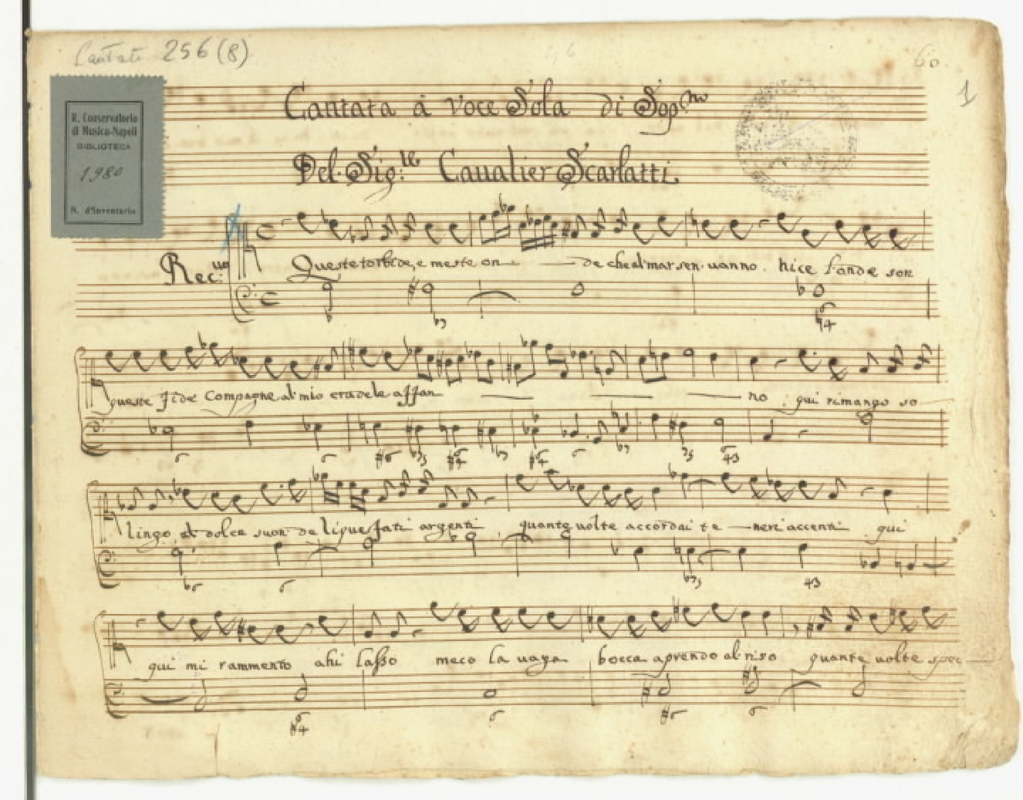 Cantate 256 (8)
60.
1
R. Conservatorio
di Musica-Napoli
BIBLIOTECA
1980
N. d'Inventario
Cantata à Voce Sola di Sop.no
Del Sig.re Caualier Scarlatti
Rec.uo
Queste torbide, e meste on de che al mar sen uanno. Nice l'onde son
queste fide Compagne al mio crudele affan no qui rimango so
lingo, al dolce suon de liquefati argenti quante uolte accordai te neri accenti qui
qui mi rammento ahi lasso meco la uaga bocca aprendo al riso quante uolte spec